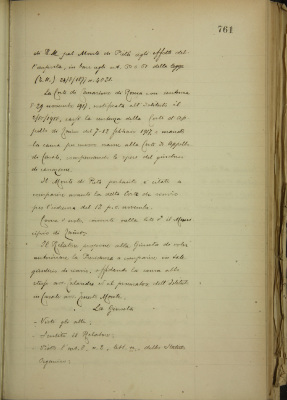 761
di R.M. pel Monte di Pietà agli effetti del
l'imposta, in base agli art. 50 e 51 della legge
(T.U.) 24/8/1877 n. 4021.
La Corte di Cassazione di Roma con sentenza
29 novembre 1917, notificata all'Istituto il
1918, cassò la sentenza della Corte d'Ap
pello di Roma del 7-12 febbraio 1917, e mandò
la causa per nuovo esame alla Corte di Appello
di compensando le spese del giudizio
di cassazione.
Il Monte di Pietà pertanto è citato a
comparire avanti la detta Corte di rinvio
per l'udienza del 12 p.v. novembre.
Come è noto, assunto nella lite è il Muni
cipio di
Il Relatore propone alla Giunta di voler
autorizzare la Presidenza a comparire in tale
giudizio di rinvio, affidando la causa allo
stesso avv. ed al procuratore dell'Istituto
avv.
La Giunta
- Visti gli atti;
- Sentito il Relatore;
- Visto l'art. n. 2, lett. dello Statuto
Organico;